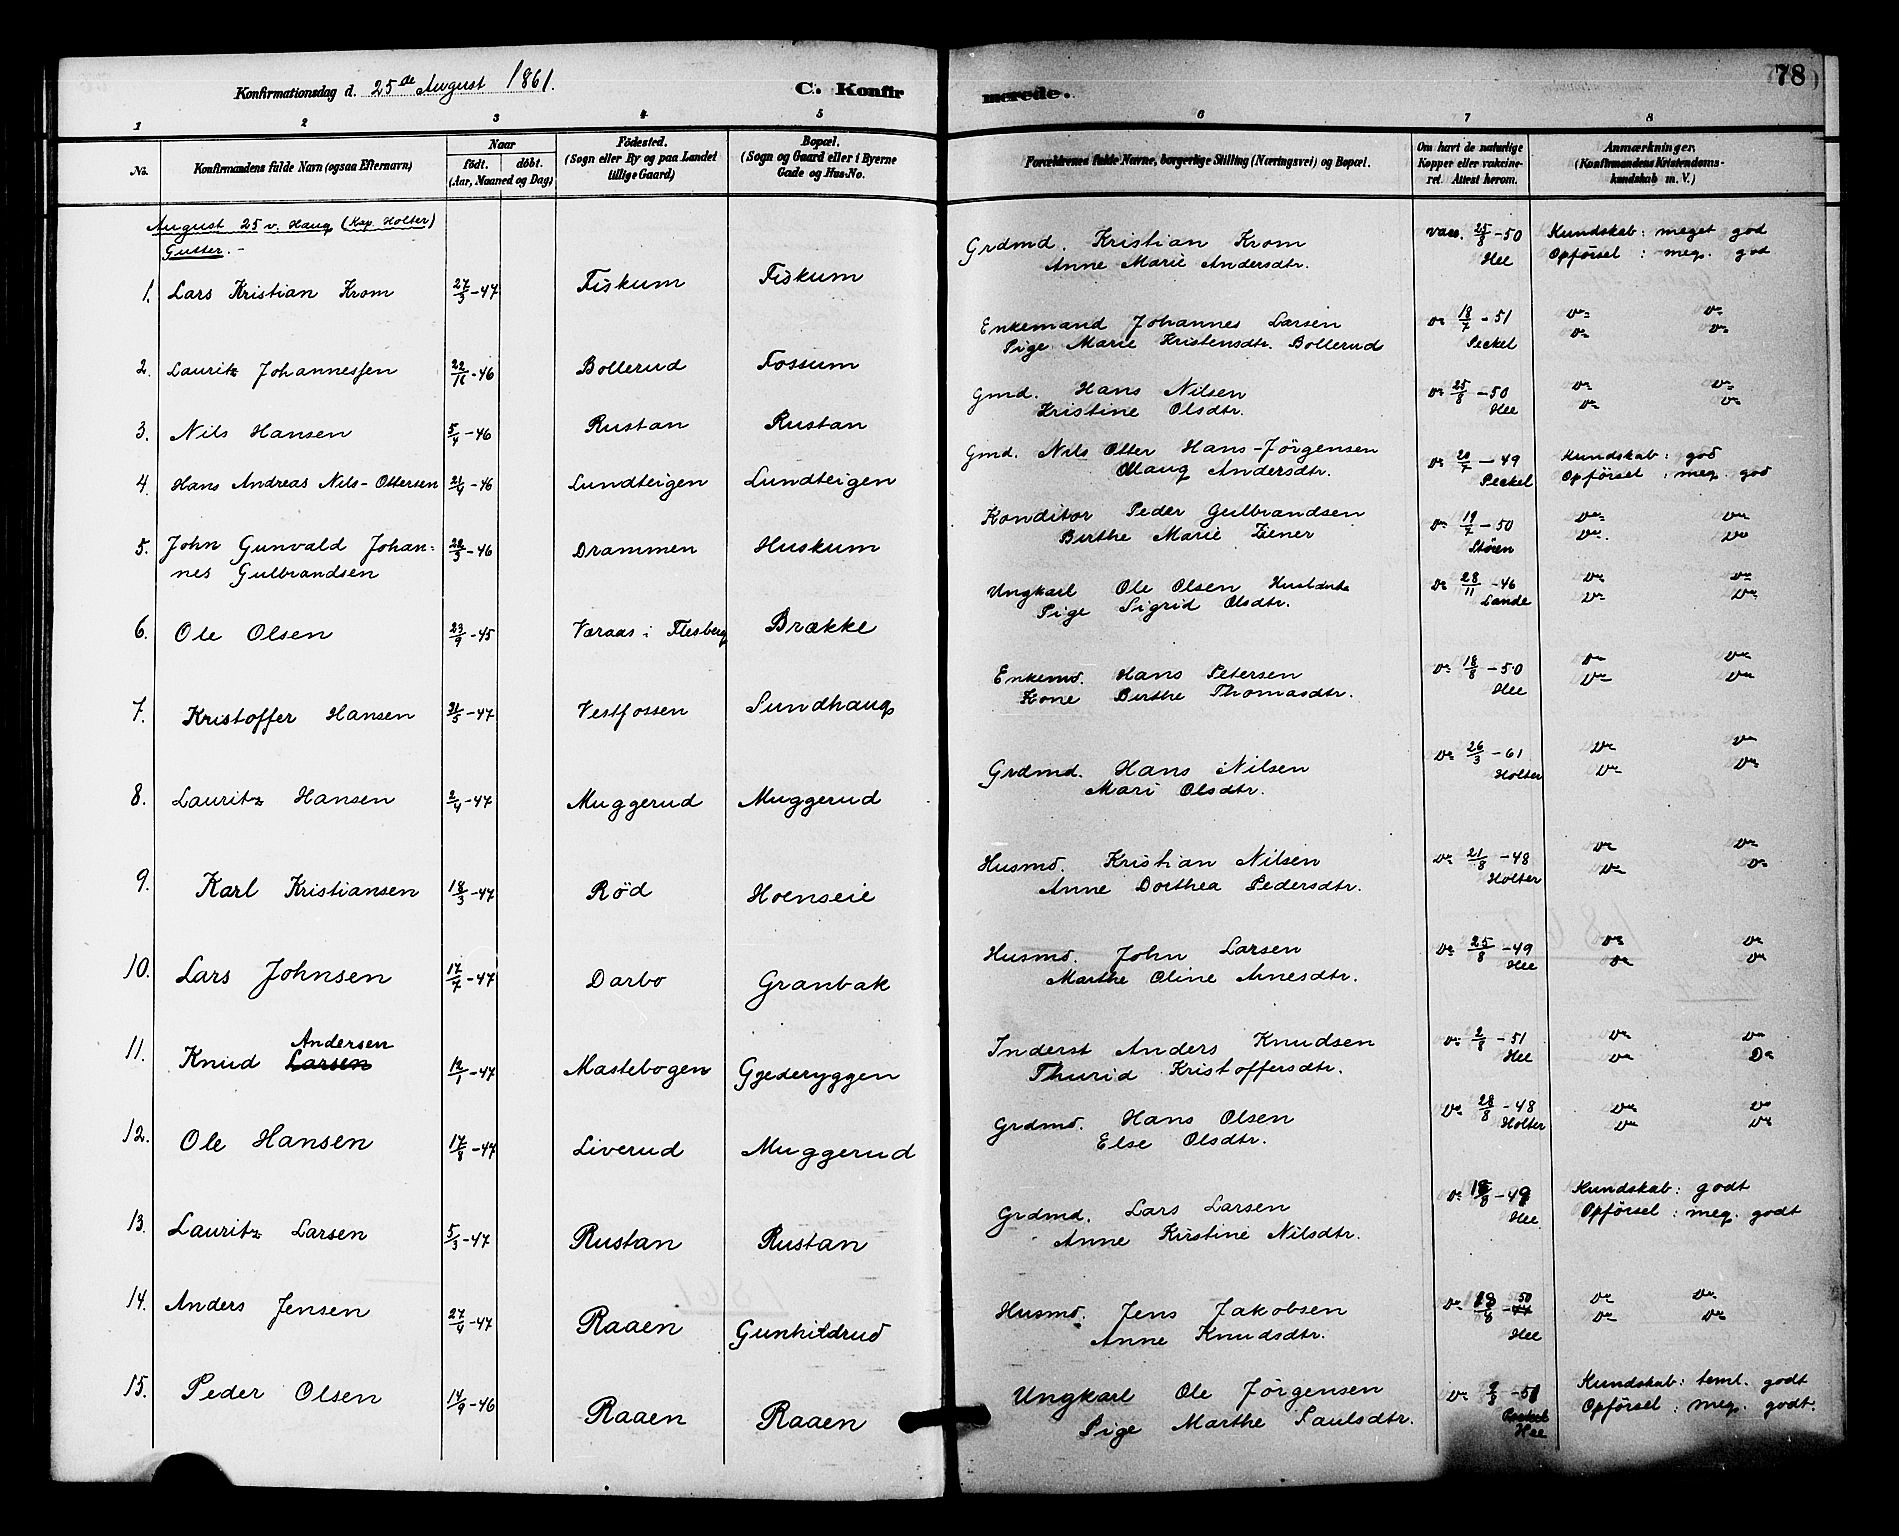 78
Konfirmationsdag d. 25de August 1861.
C. Konfirmerede.
1 2 3 4 5 6 7 8
No.
Konfirmandens fulde Navn (ogsaa Efternavn)
Naar
født. døbt.
(Aar, Maaned og Dag)
Fødested.
(Sogn eller By og paa Landet
tillige Gaard)
Bopæl.
(Sogn og Gaard eller i Byerne
Gade og Hus-No.
Forældrenes fulde Navne, borgerlige Stilling (Næringsvei) og Bopæl.
Om havt de naturlige
Kopper eller vakcine-
ret. Attest herom.
Anmærkninger.
(Konfirmandens Kristendoms-
kundskab m. V.)
August 25 v. Haug (Kap. Holter)
Gutter. -
1. Lars Kristian Krom 27/3-47 Fiskum Fiskum
Grdmd. Kristian Krom vacc. 25/8-50 Kundskab: meget god
Anne Marie Andersdtr. Hee Opförsel: meg. god
2. Lauritz Johannessen 22/11-46 Bollerud Fossum
Enkemand Johannes Larsen do 18/7-51 do do
Pige Marie Kristensdtr. Bollerud Peckel do do
3. Nils Hansen 5/4-46 Rustan Rustan
Gmd. Hans Nilsen do 25/8-50 do do
Kristine Olsdtr. Hee do do
4. Hans Andreas Nils-Ottersen 21/4-46 Lundteigen Lundteigen
Gmd. Nils Otter Hans-Jörgensen do 20/7-49 Kundskab: god
Andersdtr. Peckel Opförsel: meg. god
5. John Gunvald Johan-
nes Gulbrandsen 28/3-46 Drammen Huskum
Konditor Peder Gulbrandsen do 19/7-50 do do
Birthe Marie Ziener Stören do do
6. Ole Olsen 23/9-45 Væraas i Flesberg Brække
Ungkarl Ole Olsen do 28/11-46 do do
Pige Sigrid Olsdtr. Lande do do
7. Kristoffer Hansen 31/5-47 Vestfossen Sundhaug
Enkemd. Hans Petersen do 18/8-50 do do
Kone Birthe Thomasdtr. Hee do do
8. Lauritz Hansen 2/4-47 Muggerud Muggerud
Grdmd. Hans Nilsen do 26/3-61 do do
Mari Olsdtr. Holter do do
9. Karl Kristiansen 18/3-47 Röd Hoenseie
Husmd. Kristian Nilsen do 21/8-48 do do
Anne Dorthea Pedersdtr. Holter do do
10. Lars Johnsen 17/7-47 Darbo Granbak
Husmd. John Larsen do 25/8-49 do do
Marthe Oline Arnesdtr. Hee do do
Andersen
11. Knud Larsen 12/1-47 Mastebogen Gjederyggen
Inderst Anders Knudsen do 2/8-51 do do
Thurid Kristoffersdtr. Hee do Do
12. Ole Hansen 17/8-47 Liverud Muggerud
Grdmd. Hans Olsen do 28/8-48 do do
Else Olsdtr. Holter do do
13. Lauritz Larsen 5/3-47 Rustan Rustan
Grdmd. Lars Larsen do 49 Kundskab: godt
Anne Kirstine Nilsdtr. Hee Opförsel: meg. godt
14. Anders Jensen 27/4-47 Raaen Gunhildrud
Husmd. Jens Jakobsen do 18/8-50 do do
Anne Knudsdtr. Hee do do
15. Peder Olsen 14/9-46 Raaen Raaen
Ungkarl Ole Jörgensen do 51 Kundskab: teml. godt
Pige Marthe Paulsdtr. Peckel Opförsel: meg. godt.
Hee